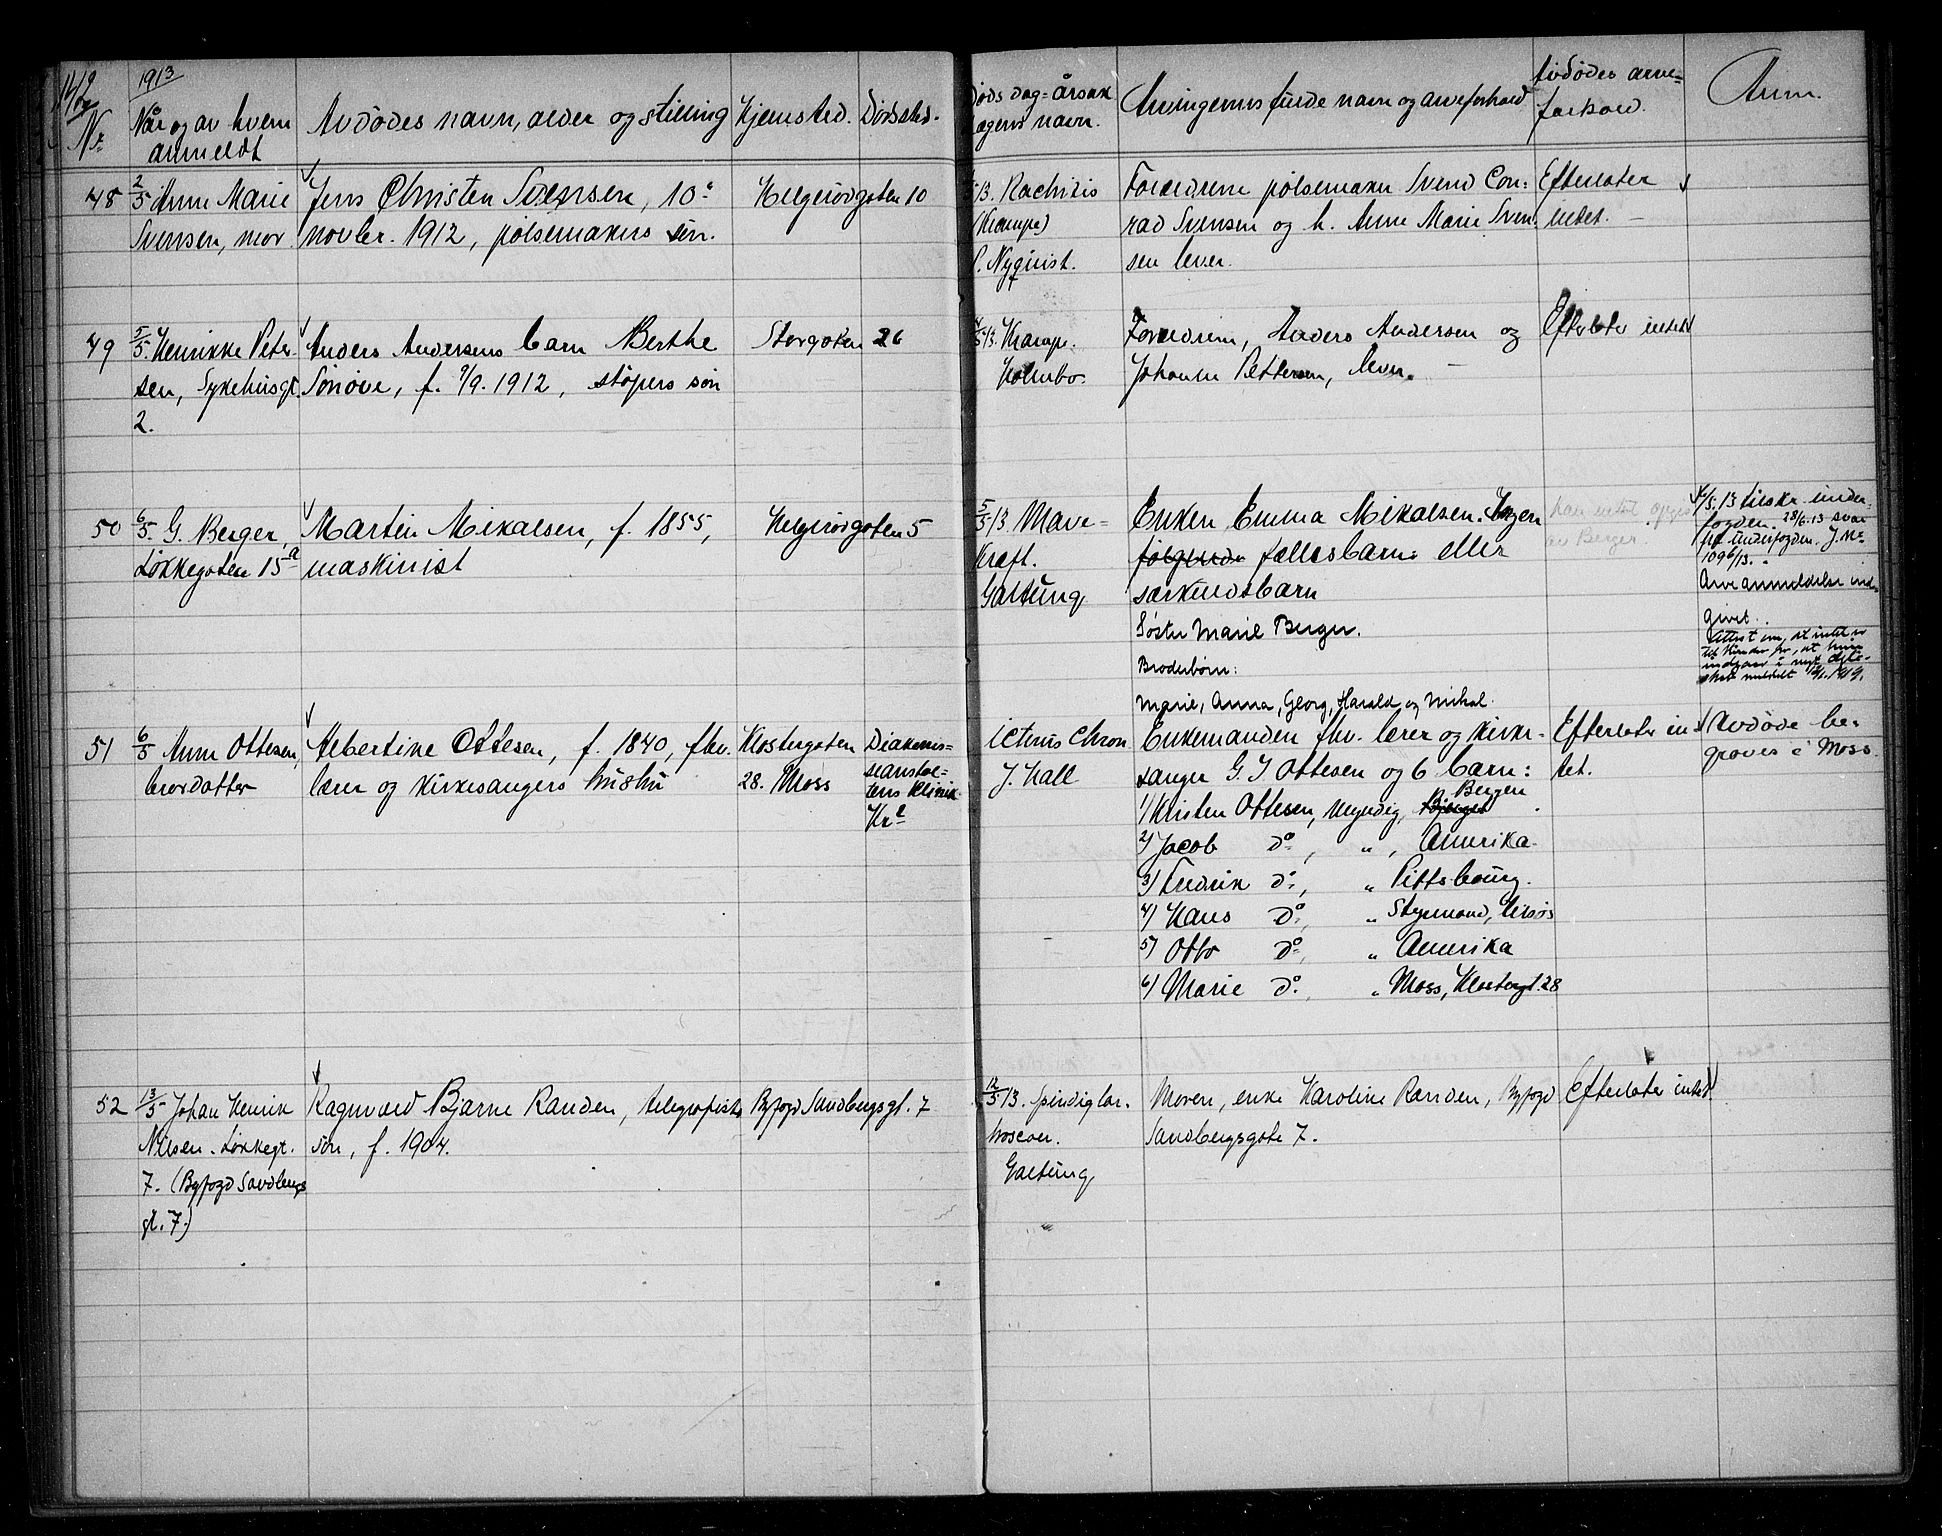 1913
Nr
Når og av hvem
anmeldt
Avdødes navn, alder og stilling
Hjemsted.
Dødssted.
Døds dag-årsak
lægens navn.
Arvingernes fulde navn og arveforhold
Avdødes arve-
forhold.
Anm.
48
2/5 Anne Marie
Svensen, mor
Jens Christen Svensen, 10de
novbr. 1912, pølsemakers søn.
Helgerødgaten 10
13. Rachitis
(Krampe)
Nyquist.
Forældrene pølsemaker Svend Con-
rad Svensen og h. Anne Marie Sven-
sen lever.
Efterlater
intet. —
49
5/5. Henrikke Peter-
sen, Sykehusgt.
2.
Anders Andersens barn Berthe
Sønøve, f. 9/9. 1912, støpers søn
Storgaten 26
4/5 13. Krampe.
Holmbo.
Forældrene, Anders Andersen og
Johanne Pettersen, lever. —
Efterlater intet
50
6/5. G. Berger,
Løkkegaten 15a
Martin Mikalsen, f. 1855,
maskinist
Helgerødgaten 5
5/5 13 Mave-
kræft.
Galtung
Enken Emma Mikalsen. Ingen
følgende fællesbarn eller
særkuldsbarn
Søster Marie Berger.
Broderbørn:
Marie, Anna, Georg, Harald og Mikal.
Kan intet opgis
av Berger.
6/5. 13 tilskr. under-
fogden. 28/6. 13 svar
fra underfogden. J. Nr.
1096/13.
Arveanmeldelse ind-
givet.
Attest om, at intet er
til hinder for, at hun
indgaar i nyt ekte-
skab meddelt 1919.
51
6/5 Anne Ottesen,
brordatter
Albertine Ottesen, f. 1840, fhv.
lærer og kirkesangers hustru
Klostergaten
28. Moss
Diakonis-
seanstal-
tens klinik
Kra
icterus chron
J. Hall
Enkemanden fhv. lærer og kirke-
sanger G. J Ottesen og 6 barn:
1) Kristen Ottesen, myndig, Bjerget Bergen
2) Jacob do, „ , Amerika.
3) Fredrik do, „ Pittsbourg.
4) Hans do, „ Styrmand, tilsjøs
5) Otto do, „ Amerika
6) Marie do, „ Moss, Klostergt. 28
Efterlater in-
tet.
Avdøde be-
graves i Moss
52
13/5 Johan Henrik
Nilsen. Løkkegt.
7. (Byfogd Sandbergs
gt. 7.)
Ragnvald Bjarne Randen, telegrafists
søn, f. 1904.
Byfogd Sandbergsgt. 7
12/5 13.
Galtung
Moren, enke Karoline Randen, Byfogd
Sandbergsgate 7.
Efterlater intet